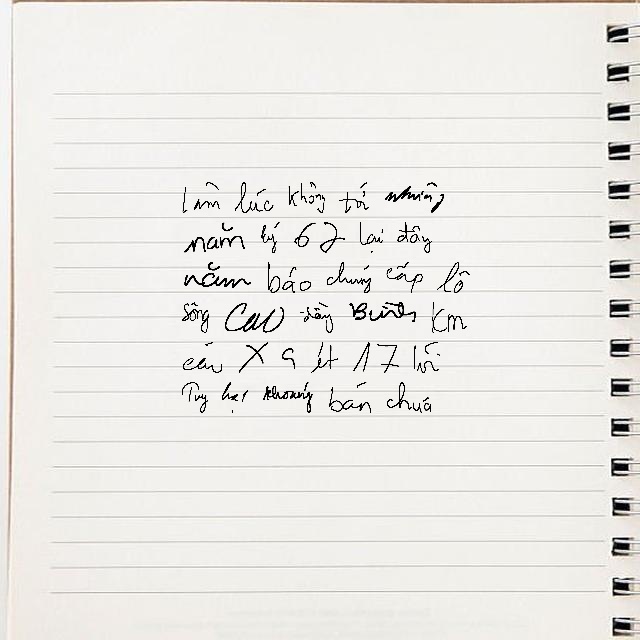 lúc không tới những
năm ký 62 lại đây
năm báo chúng cấp lô
sông Cao Bình Km
X 9 ít 17 lối
Tuy hại khoảng bán chưa